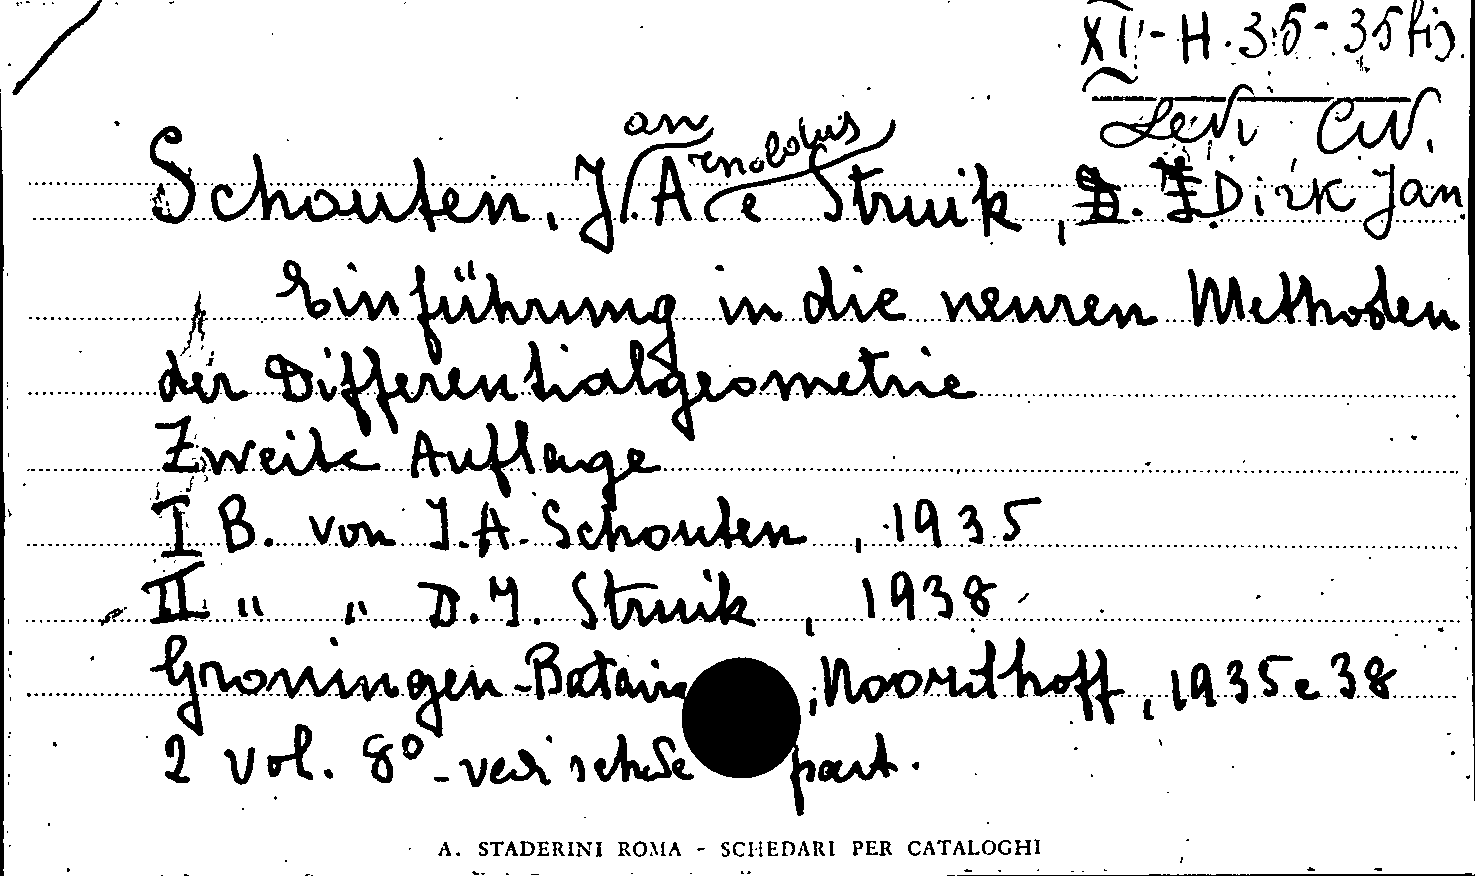 XI - H. 35 - 35 bis
Levi Civ.
Schouten, Jan Arnoldus e Struik, D. J. Dirk Jan
Einführung in die neuren Methoden
der Differentialgeometrie
Zweite Auflage
I B. von J. A. Schouten, 1935
II " " D. J. Struik, 1938
Groningen - Batavia, Noordhoff, 1935 e 38
2 vol. 8° - vedi schede part.
A. STADERINI ROMA - SCHEDARI PER CATALOGHI